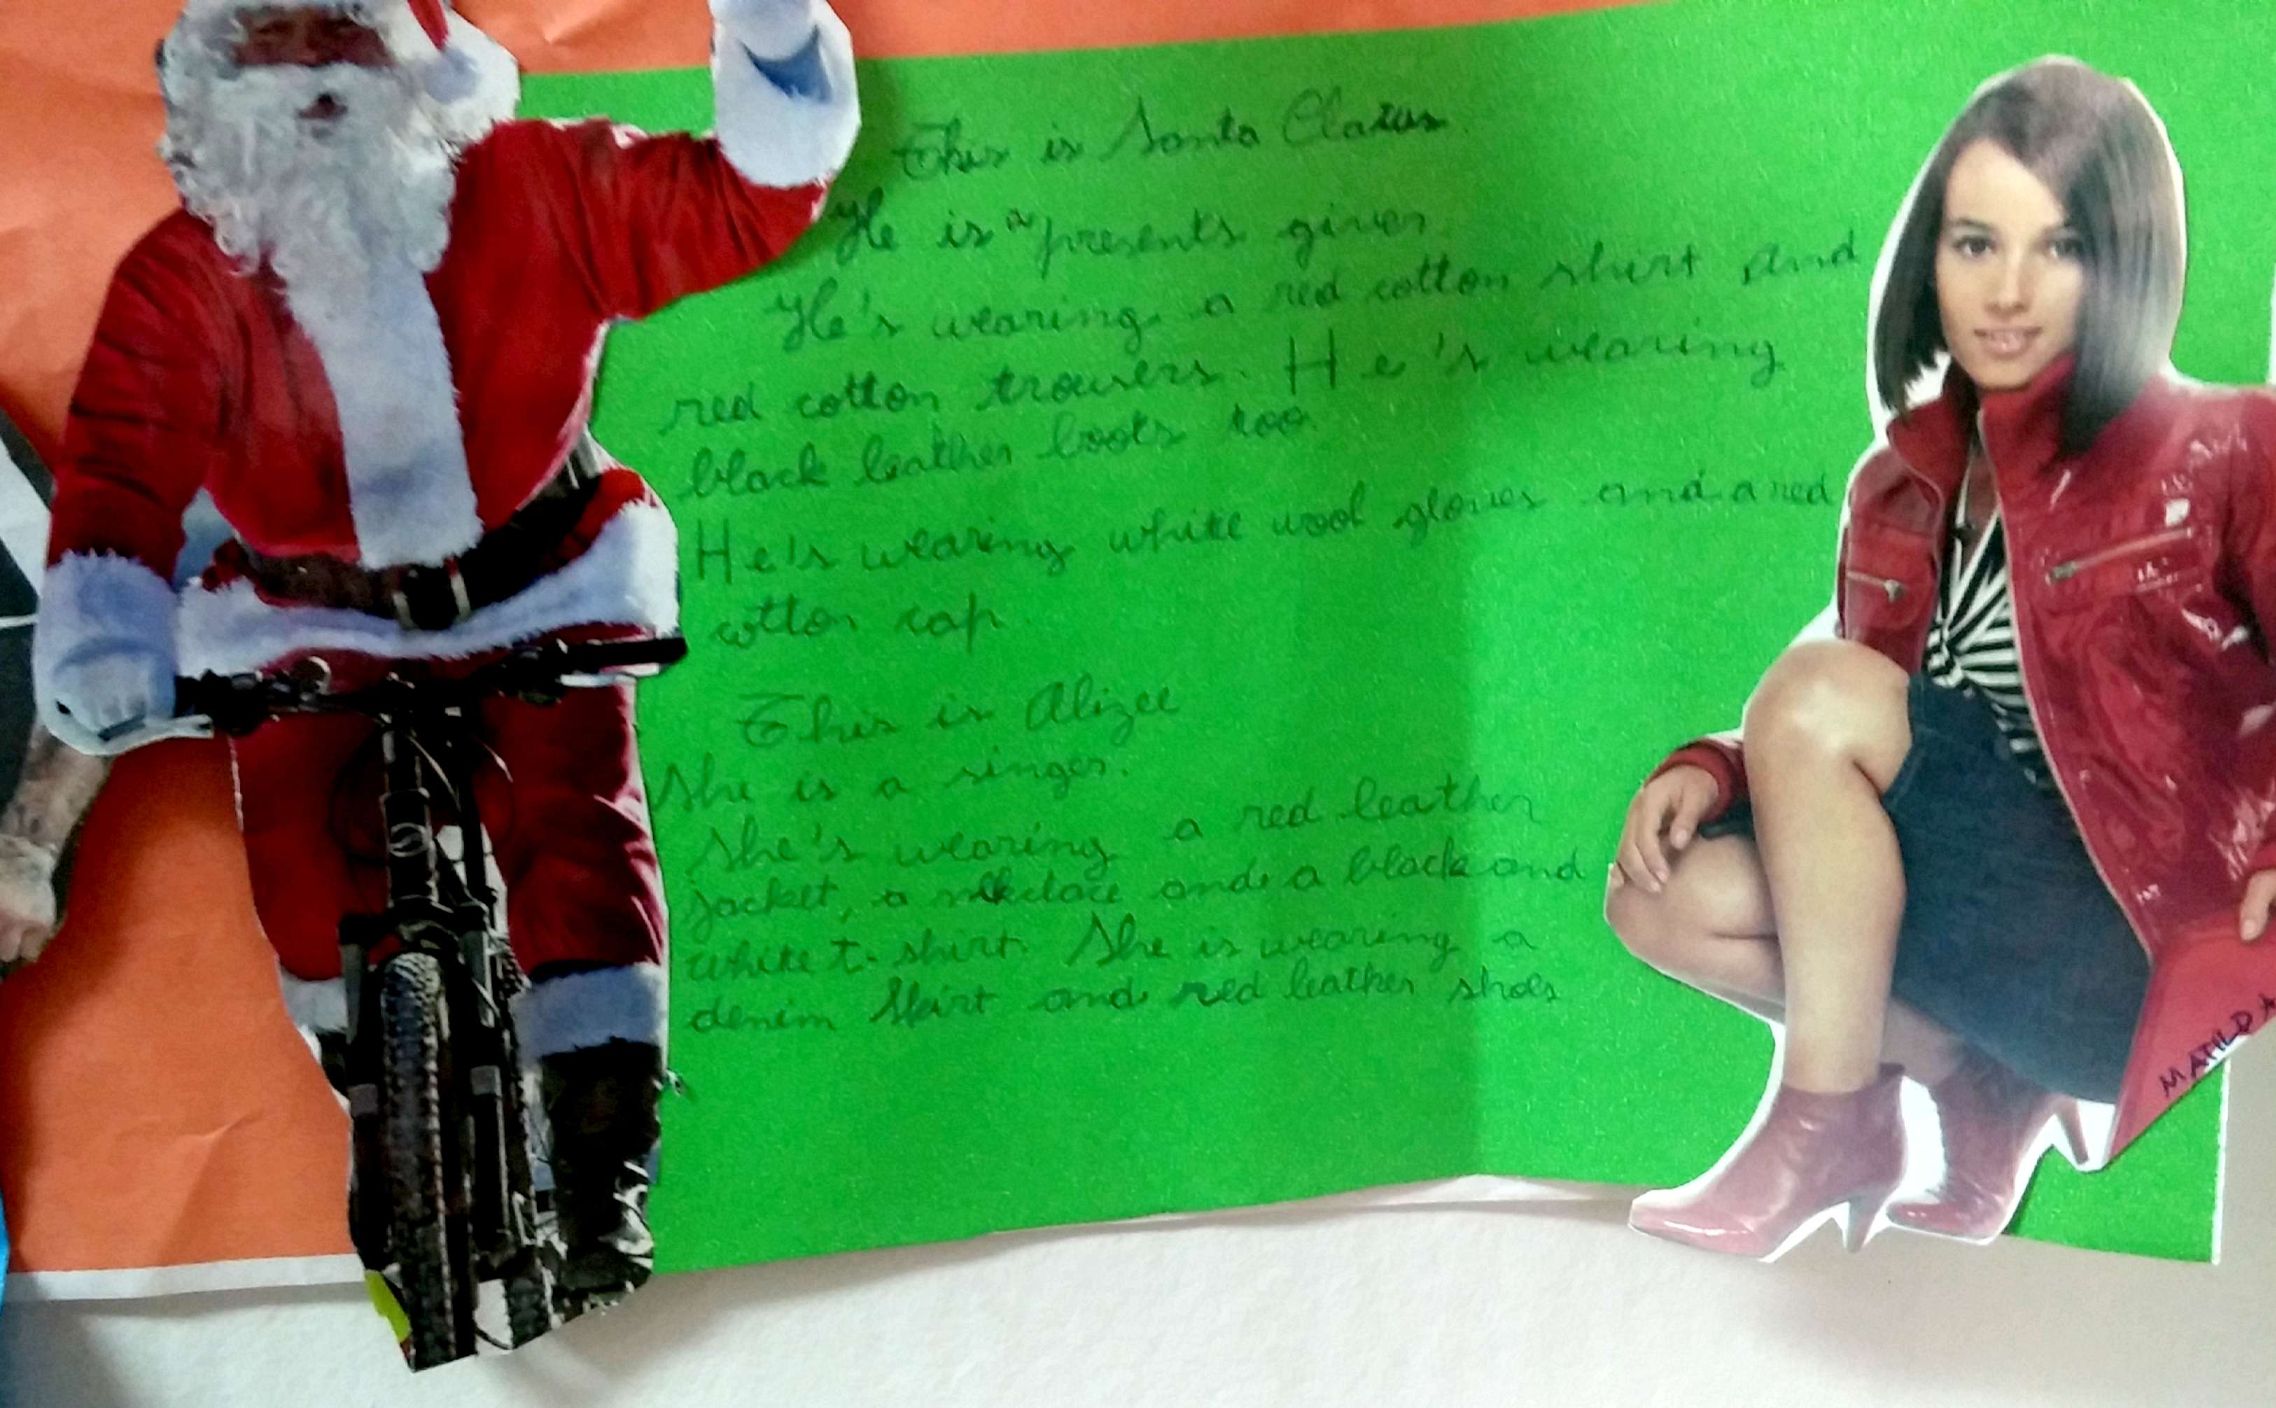 This is Santa Claus.
He is a presents giver.
He's wearing a red cotton shirt and
red cotton trousers. He's wearing
black leather boots too.
He's wearing white wool gloves and a red
cotton cap.
This is Alizee
She is a singer.
She's wearing a red leather
jacket, a necklace and a black and
white t-shirt. She is wearing a
denim skirt and red leather shoes
MATILDA